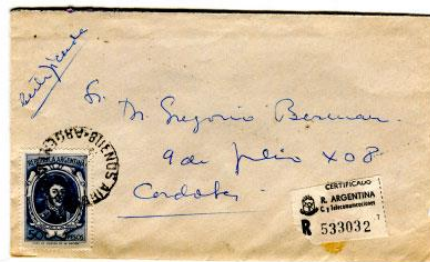 Certificada
Sr. Dr. Gregorio Berman
9 de Julio 408
Cordoba
BUENOS AIRES
REPUBLICA ARGENTINA
50 PESOS
CERTIFICADO
R. ARGENTINA
C. y Telecomunicaciones
R 533032